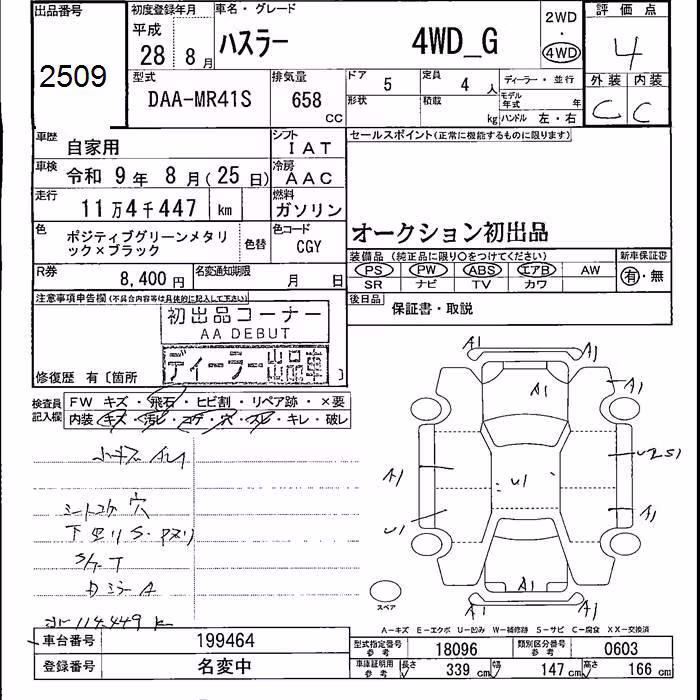 出品番号
2509
初度登録年月
平成
28 8月
車名・グレード
ハスラー 4WD_G
2WD
・
4WD
評価点
4
外装 内装
C C
型式
DAA-MR41S
排気量
658
CC
ドア
5
定員
4 人
形状
積載
kg
ディーラー・並行
モデル
年式 年
ハンドル 左・右
車歴
自家用
シフト
IAT
車検
令和 9年 8月(25日)
冷房
AAC
走行
11万4千447 km
燃料
ガソリン
色
ポジティブグリーンメタリ
ック×ブラック
色替
色コード
CGY
R券
8,400円
名変通知期限
月 日
セールスポイント(正常に機能するものに限ります)
オークション初出品
装備品 (純正品に限り○をつけてください)
PS PW ABS エアB AW
SR ナビ TV カワ
新車保証書
有・無
後日品
保証書・取説
注意事項申告欄(不具合内容等は具体的に記入して下さい)
初出品コーナー
AA DEBUT
ディーラー出品車
修復歴 有〔箇所 〕
検査員
記入欄
FW キズ・飛石・ヒビ割・リペア跡・×要
内装・キズ・汚レ・コゲ・穴・スレ・キレ・破レ
小キズ
シートコゲ 穴
A1 A1
A1
A1
U1
A1
U1
U2S1
A1
A1
A1 A1
スペア
A-キズ E-エクボ U-凹み W-補修跡 S-サビ C-腐食 XX-交換済
車台番号
199464
登録番号
名変中
型式指定番号
参考
18096
類別区分番号
参考
0603
車庫証明用
参考
長さ 339 cm 幅 147 cm 高さ 166 cm